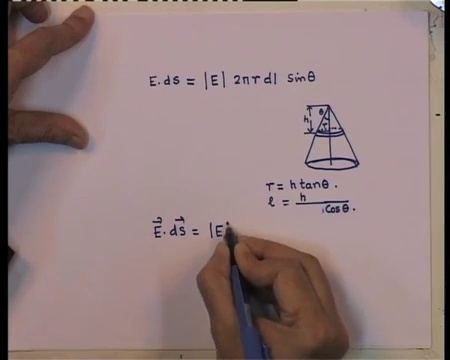 E. ds = |E| 2πr dl sinθ
θ
h
r
r = h tanθ.
l = h / cosθ.
E⃗. ds⃗ = |E